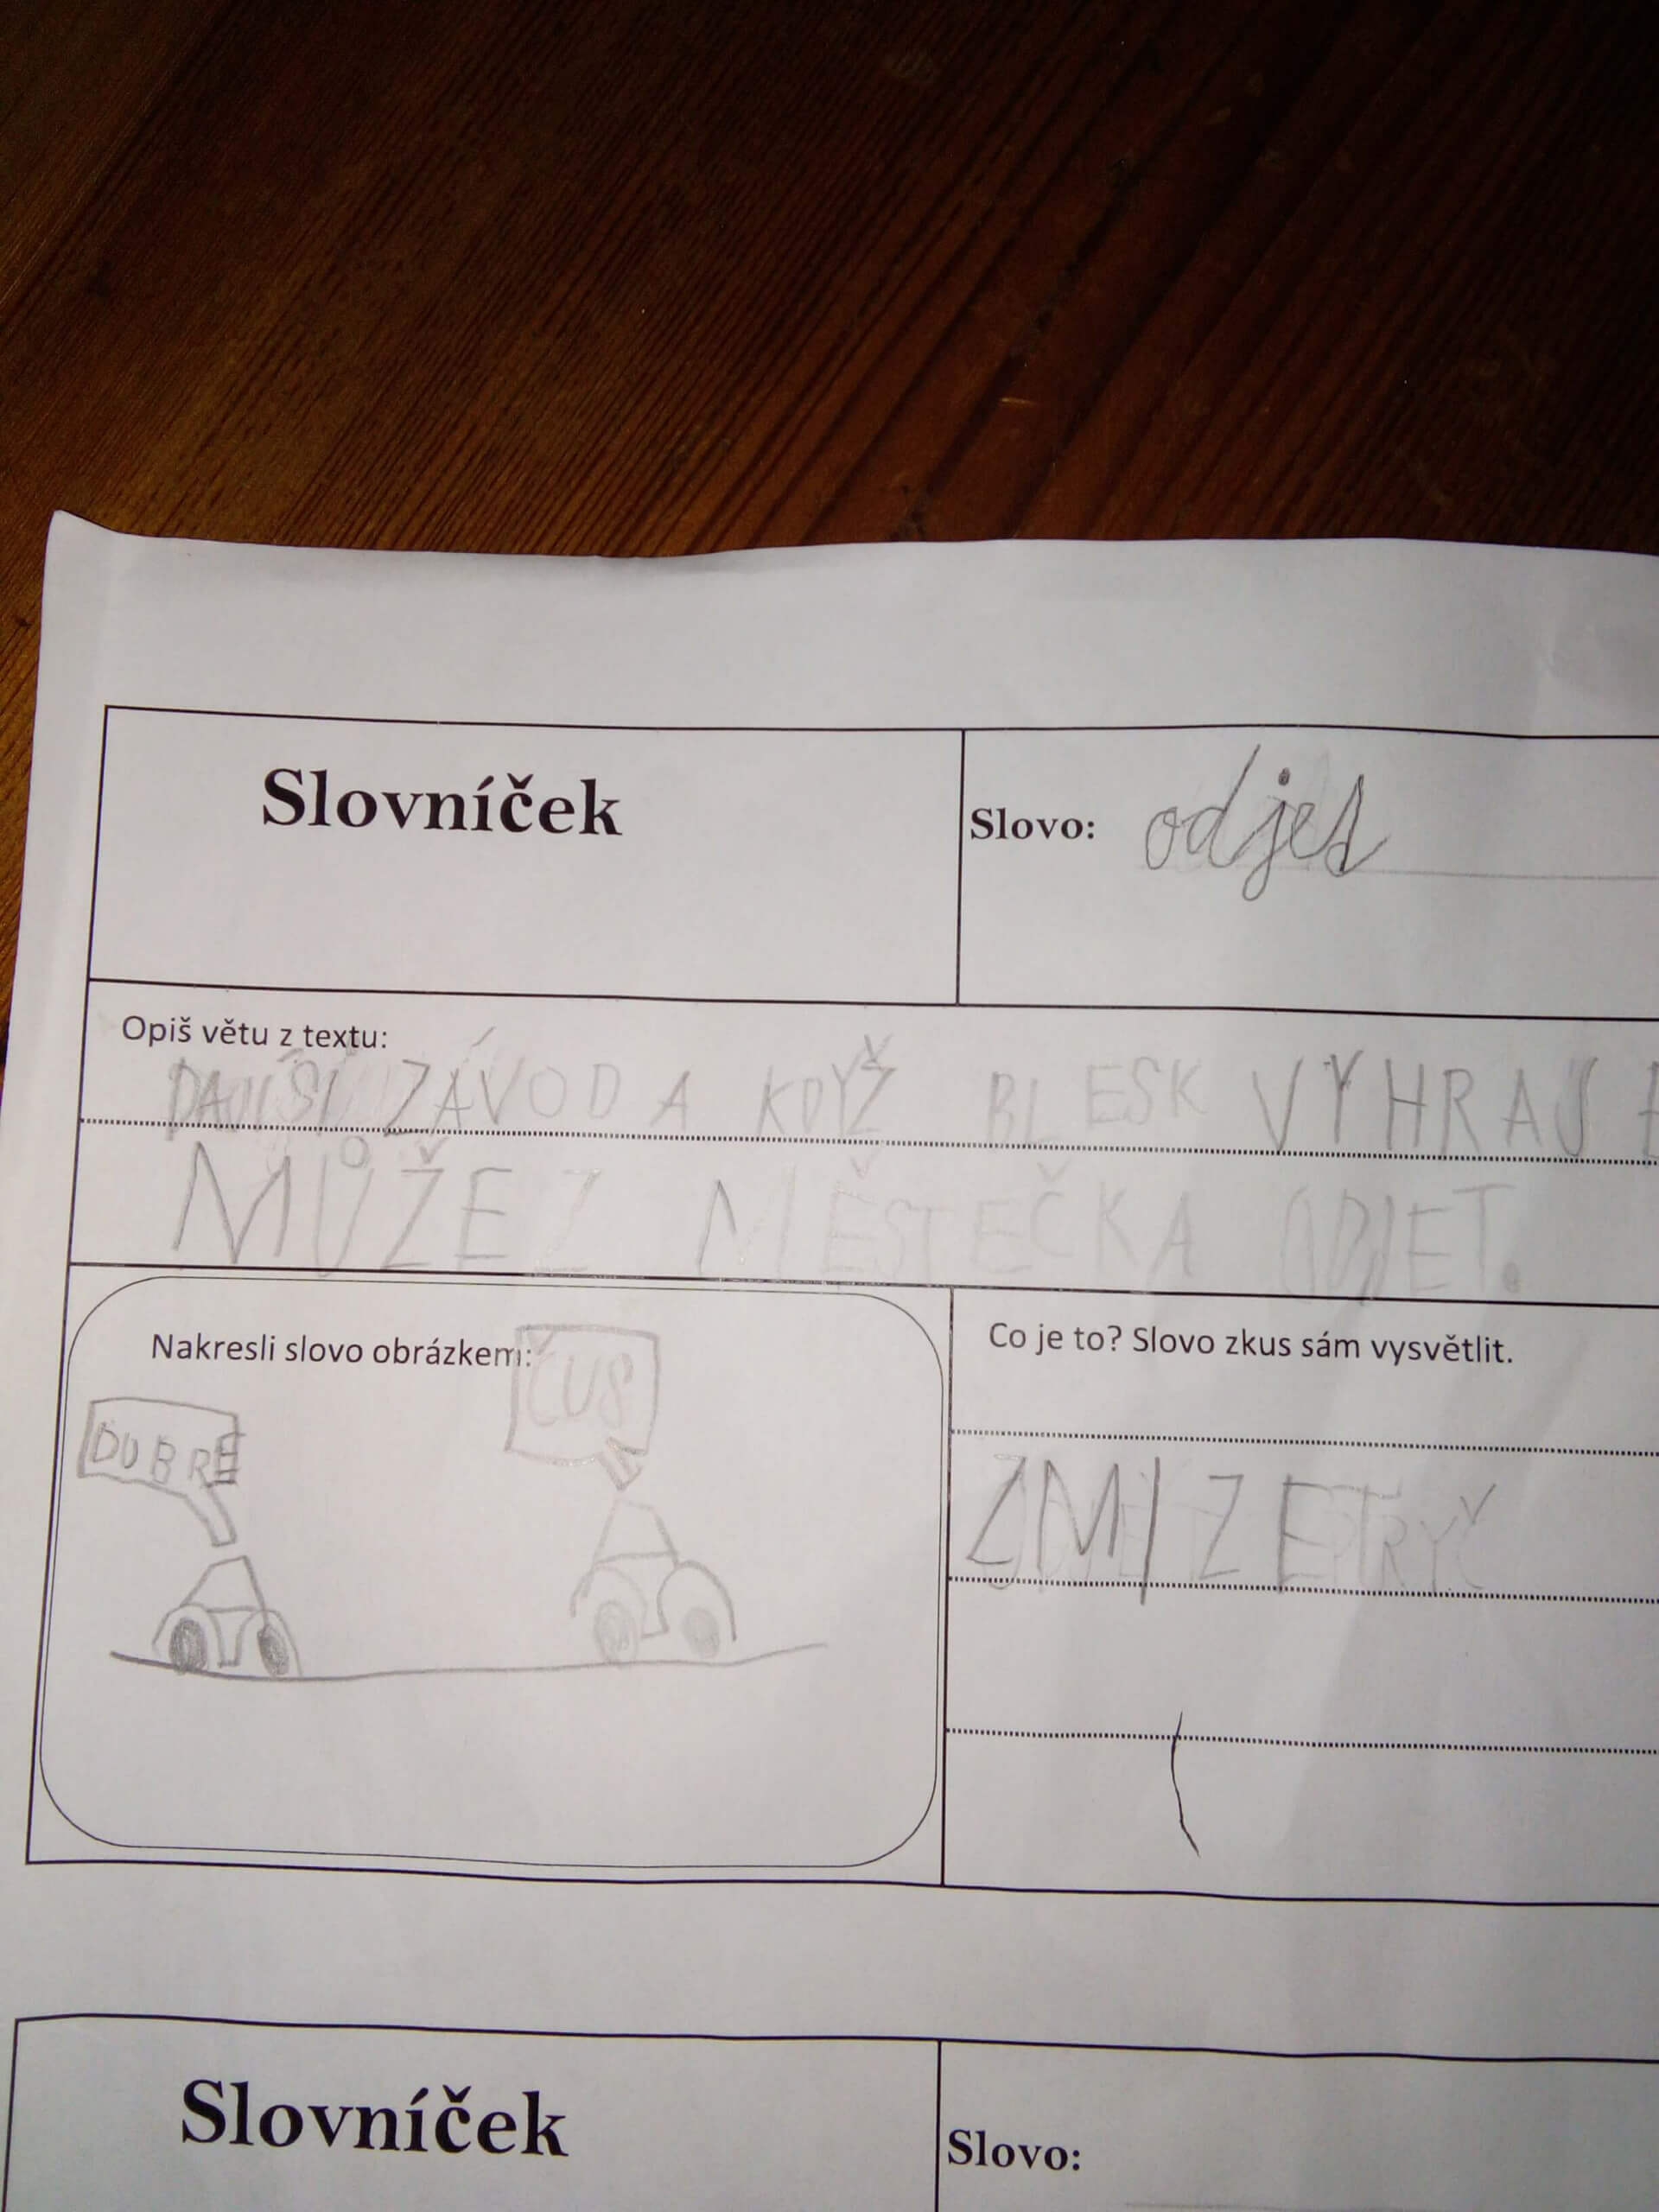 Slovníček
Slovo: odjet
Opiš větu z textu:
DALŠÍ ZÁVOD A KDYŽ BLESK VYHRAJE
MŮŽE Z MĚSTEČKA ODJET.
Nakresli slovo obrázkem:
ČUS
DOBRE
Co je to? Slovo zkus sám vysvětlit.
ZMIZET
Slovníček
Slovo: